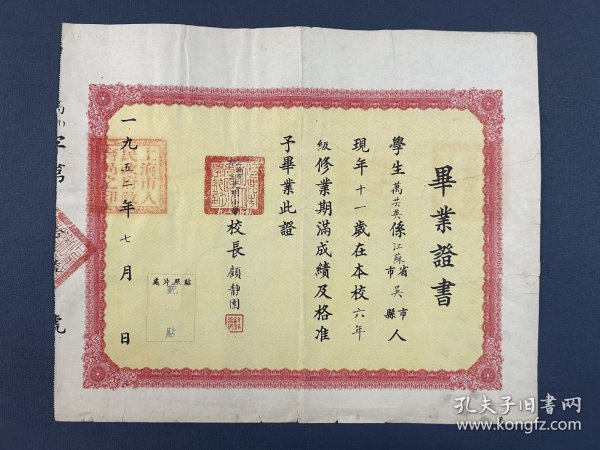 畢業證書
學生萬芸英係江蘇省吳縣市人
現年十一歲在本校六年
級修業期滿成績及格准
予畢業此證
校長 顧靜園
一九五二年七月 日
貼照片處
免貼
字第
號
孔夫子旧书网
www.kongfz.com